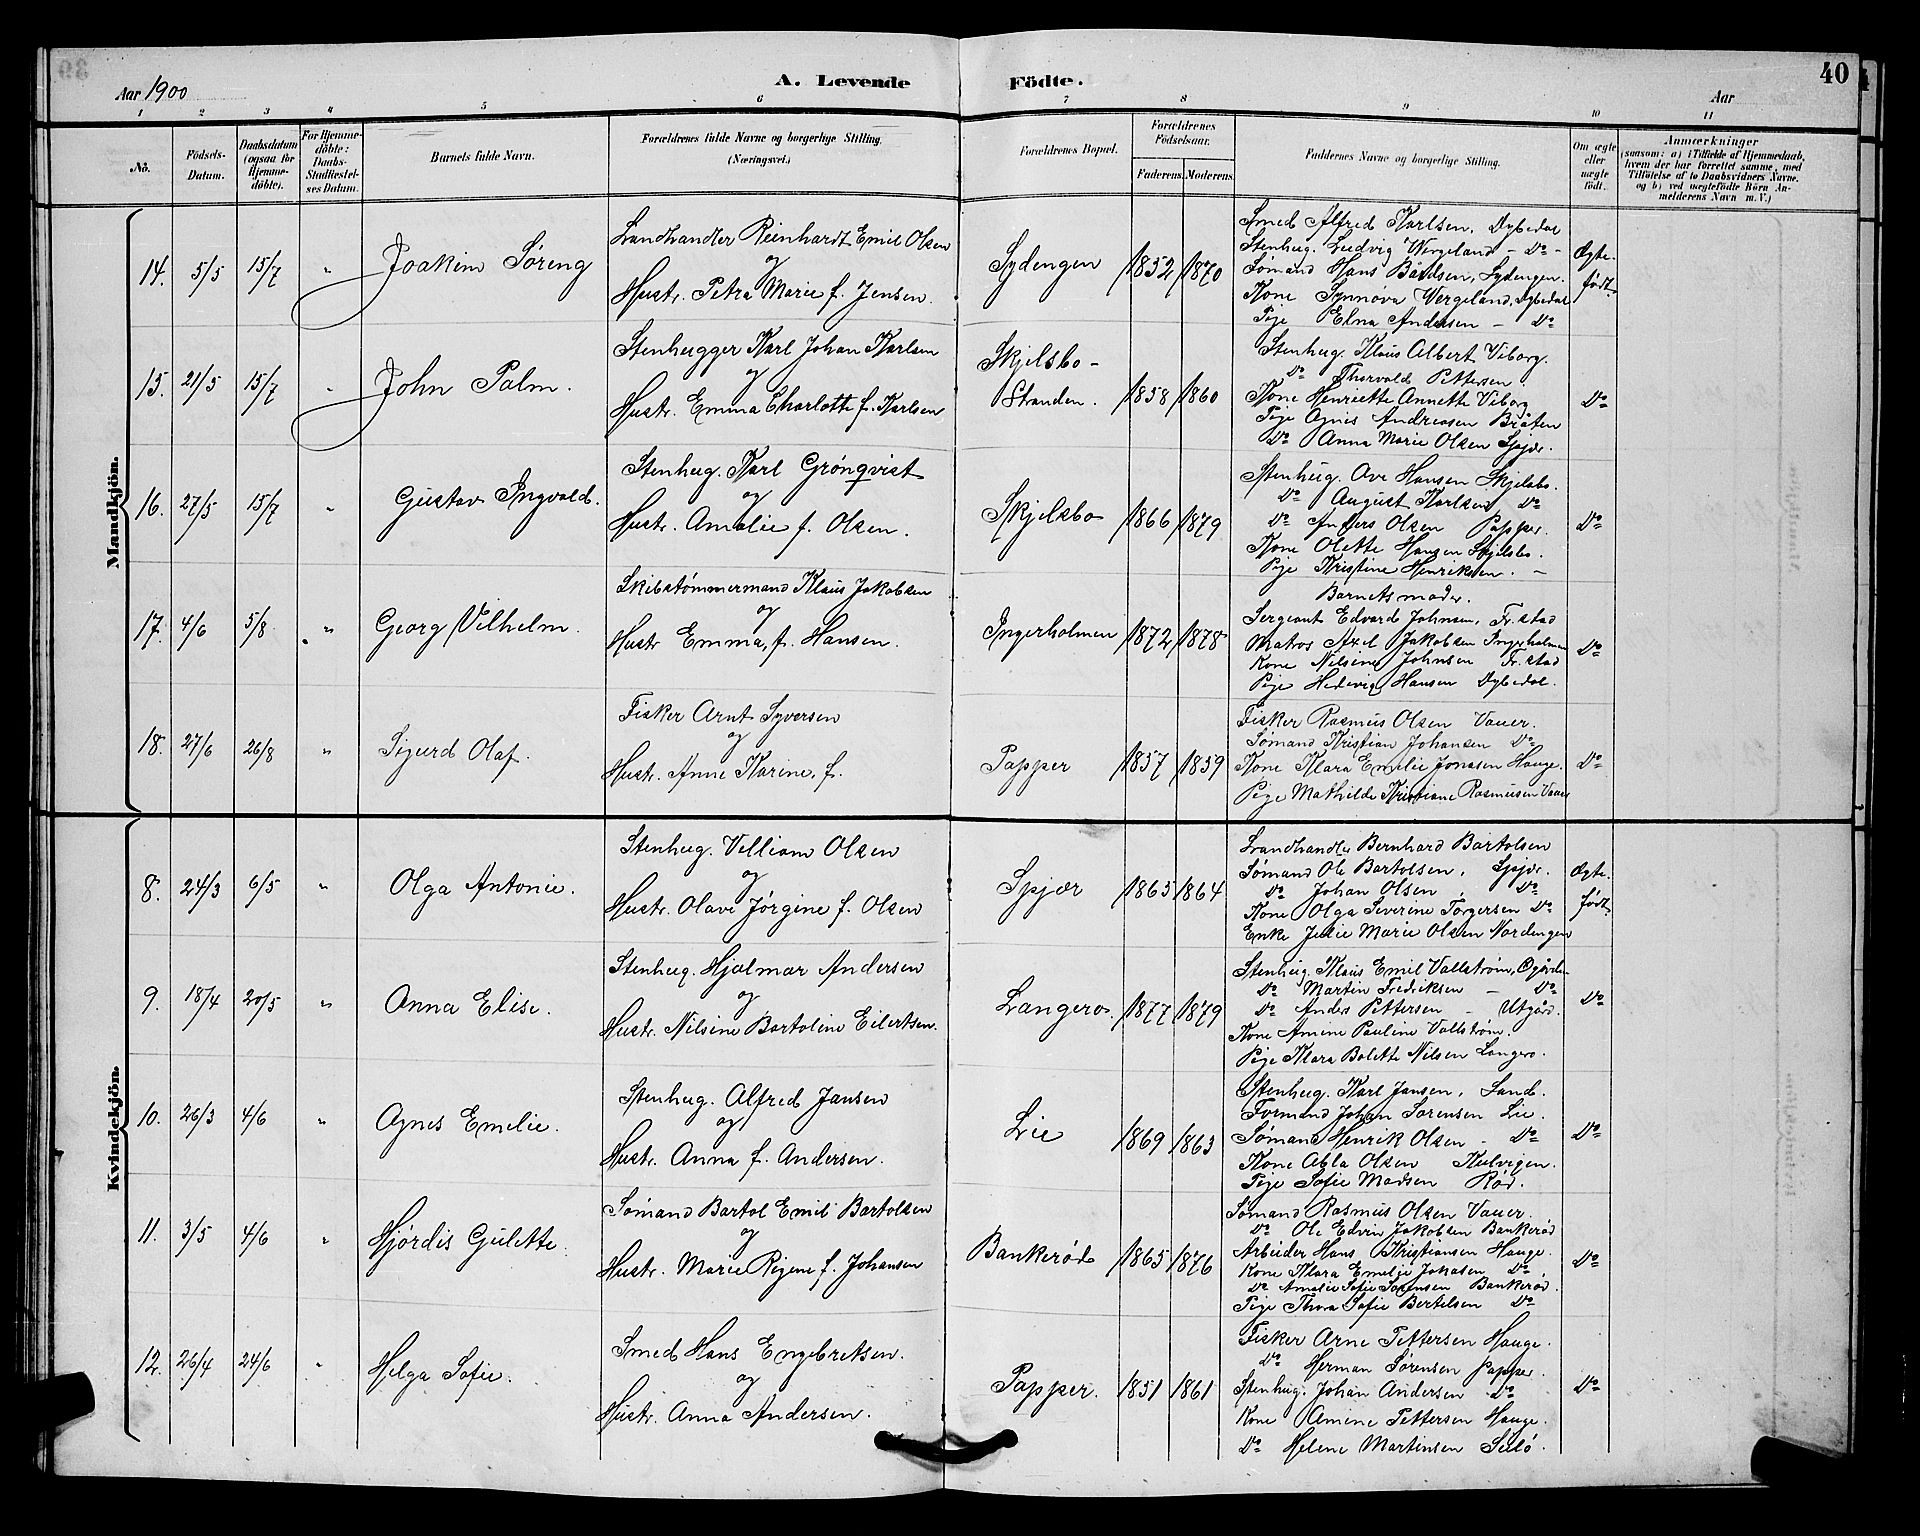 Aar 1900
A. Levende
Födte.
Aar
40
1 2 3 4 5 6 7 8 9 10 11
No.
Födsels-
Datum.
Daabsdatum
(ogsaa for
Hjemme-
döbte).
For Hjemme-
döbte:
Daabs-
Stadfæstel-
ses Datum.
Barnets fulde Navn.
Forældrenes fulde Navne og borgerlige Stilling.
(Næringsvei.)
Forældrenes Bopæl.
Forældrenes
Födselsaar.
Faderens. Moderens.
Faddernes Navne og borgerlige Stilling.
Om ægte
eller
uægte
födt.
Anmærkninger
(saasom: a) i Tilfælde af Hjemmedaab,
hvem der har forrettet samme, med
Tilföielse af to Daabsvidners Navne.
og b) ved uægtefödte Börn An-
melderens Navn m. V.)
Mandkjön.
14. 5/5 15/7 "
Joakim Søreng
Landhandler Reinhardt Emil Olsen
og
Hustr. Petra Marie f. Jensen.
Sydengen
1852 1870
Smed Alfred Karlsen, Dybedal
Stenhug. Ludvig Wergeland - Do -
Sømand Hans Bårdsen, Sydengen.
Kone Synnøva Wergeland, Dybedal
Pige Elna Andersen - Do
Ægte.
født.
15. 21/5 15/7 "
John Palm.
Stenhugger Karl Johan Karlsen
og
Hustr. Emma Charlotte f. Karlsen
Skjelsbo-
Stranden.
1858 1860
Stenhug. Klaus Albert Viborg.
Do Thorvald Pettersen
Kone Henriette Annette Viborg
Pige Agnes Andreasen Bråten
Do Anna Marie Olsen Spjær.
Do
16. 27/5 15/7 "
Gustav Ingvald.
Stenhug. Karl Grönqvist
og
Hustr. Amalie f. Olsen.
Skjelsbo
1866 1879
Stenhug. Ove Hansen Skjelsbo.
Do August Karlsen Do
Do Anders Olsen Papper.
Kone Olette Hansen Skjelsbo.
Pige Kristine Henriksen. -
Do
17. 4/6 5/8 "
Georg Vilhelm.
Skibstømmermand Klaus Jakobsen
og
Hustr Emma, f. Hansen.
Ingerholmen
1872 1878
Barnets moder.
Sergeant Edvard Johnsen, Fr.stad
Matros Axel Jakobsen Ingerholmen
Kone Nilsine Johnsen Fr.stad
Pige Hedevig Hansen Dybedal.
Do
18. 27/6 26/8 "
Sigurd Olaf.
Fisker Arnt Syversen
og
Hustr. Anne Karine, f.
Papper
1857 1859
Fisker Rasmus Olsen Vauer.
Sømand Kristian Johansen Do
Kone Klara Emilie Jonasen Hauge.
Pige Mathilde Kristiane Rasmusen Vauer
Do
Kvindekjön.
8. 24/3 6/5 "
Olga Antonie.
Stenhug. Villiam Olsen
og
Hustr. Olave Jørgine f. Olsen
Spjær
1865 1864
Landhandler Bernhard Bartolsen
Sømand Ole Bartolsen, Spjær.
Do Johan Olsen, Do
Kone Olga Severine Torgersen Do
Enke Julie Marie Olsen Nordengen
Ægte.
født.
9. 18/4 20/5 "
Anna Elise.
Stenhug. Hjalmar Andersen
og
Hustr. Nilsine Bartoline Eilertsen.
Langerø.
1877 1879
Stenhug. Klaus Emil Vallstrøm,
Do Martin Fredriksen - Do
Do Anders Pettersen - Utgård.
Kone Amine Pauline Vallstrøm.
Pige Klara Bolette Nilsen Langerø.
Do
10. 26/3 4/6 "
Agnes Emilie.
Stenhug. Alfred Jansen
og
Hustr. Anna f. Andersen.
Lie
1869 1863
Stenhug. Karl Jansen, Sand.
Formand Johan Sørensen Lie.
Sømand Henrik Olsen - Do
Kone Abla Olsen Kulvigen.
Pige Sofie Madsen Rød.
Do
11. 3/5 4/6 "
Hjørdis Gulette.
Sømand Bartol Emil Bartolsen
og
Hustr. Marie Regine f. Johansen
Bankerød
1865 1876
Sømand Rasmus Olsen Vauer.
Do Ole Edvin Jakobsen Bankerød
Arbeider Hans Kristiansen Hauge.
Kone Klara Emelie Jonasen Do.
Do Amalie Sofie Sørensen Bankerød.
Pige Thora Sofie Bertelsen Do
Do
12. 26/4 24/6 "
Helga Sofie.
Smed Hans Engebretsen.
og
Hustr. Anna Andersen.
Papper.
1851 1861
Fisker Arne Pettersen Hauge.
Do Herman Sørensen Papper.
Stenhug. Johan Andersen Do
Kone Amine Pettersen Hauge.
Do Helene Martinsen
Do